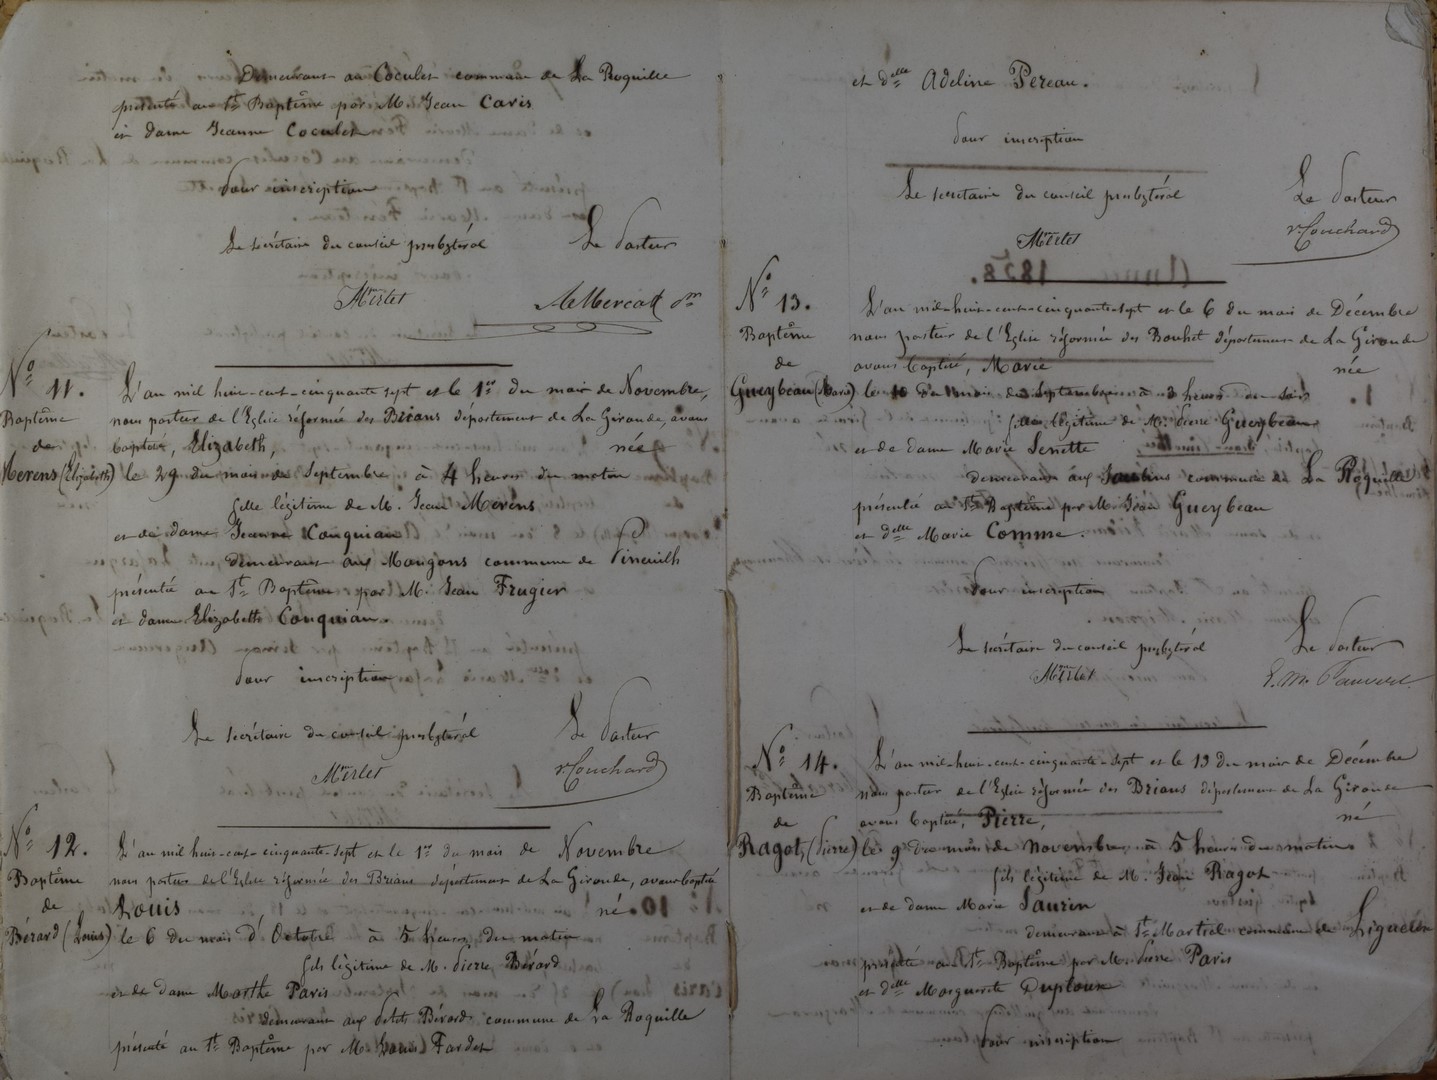 Demeurant au Coculet commune de La Roquille
présenté au St Baptême par M. Jean Caris
et dame Jeanne Coculet
Pour inscription
Le secrétaire du conseil presbytéral Le Pasteur
Merlet
No 11.
Baptême
de
Merens (Elizabeth)
L'an mil huit-cent-cinquante sept et le 1er du mois de Novembre,
nous pasteur de l'Eglise réformée des Brians département de La Gironde, avons
baptisé, Elizabeth, née
le 29 du mois de Septembre à 4 heures du matin
fille légitime de M. Jean Merens
et de dame Jeanne Couquiau
demeurant aux Mangons commune de Pineuilh
présentée au St Baptême par M. Jean Frugier
et dame Elizabeth Couquiau.
Pour inscription
Le secrétaire du conseil presbytéral Le Pasteur
Merlet
No 12.
Baptême
de
Bérard (Louis)
L'an mil huit-cent-cinquante-sept et le 1er du mois de Novembre
nous pasteur de l'Eglise réformée des Brians département de La Gironde, avons baptisé
Louis né
le 6 du mois d'Octobre à 5 heures du matin
fils légitime de M. Pierre Bérard
et de dame Marthe Paris
demeurant aux petits Bérard commune de La Roquille
présenté au St Baptême par M. Louis Fardet
et delle Adeline Pereau.
Pour inscription
Le secrétaire du conseil presbytéral Le Pasteur
Merlet
No 13.
Baptême
de
Gueybeau (Marie)
L'an mil-huit-cent-cinquante-sept et le 6 du mois de Décembre
nous pasteur de l'Eglise réformée des département de La Gironde
avons baptisé, Marie née
le du mois de Septembre à heures du soir
fille légitime de M. Pierre Gueybeau
et de dame Marie
demeurant aux commune de La Roquille
présenté au St Baptême par M. Jean Gueybeau
et delle Marie Comme.
Pour inscription
Le secrétaire du conseil presbytéral Le Pasteur
Merlet
No 14.
Baptême
de
Ragot (Pierre)
L'an mil-huit-cent-cinquante-sept et le 13 du mois de Décembre
nous pasteur de l'Eglise réformée des Brians département de La Gironde
avons baptisé, Pierre, né
le 9 du mois de Novembre à 5 heures du matin
fils légitime de M. Jean Ragot
et de dame Marie Saurin
demeurant à St Martial commune de
présenté au St Baptême par M. Pierre Paris
et delle Marguerite
Pour inscription